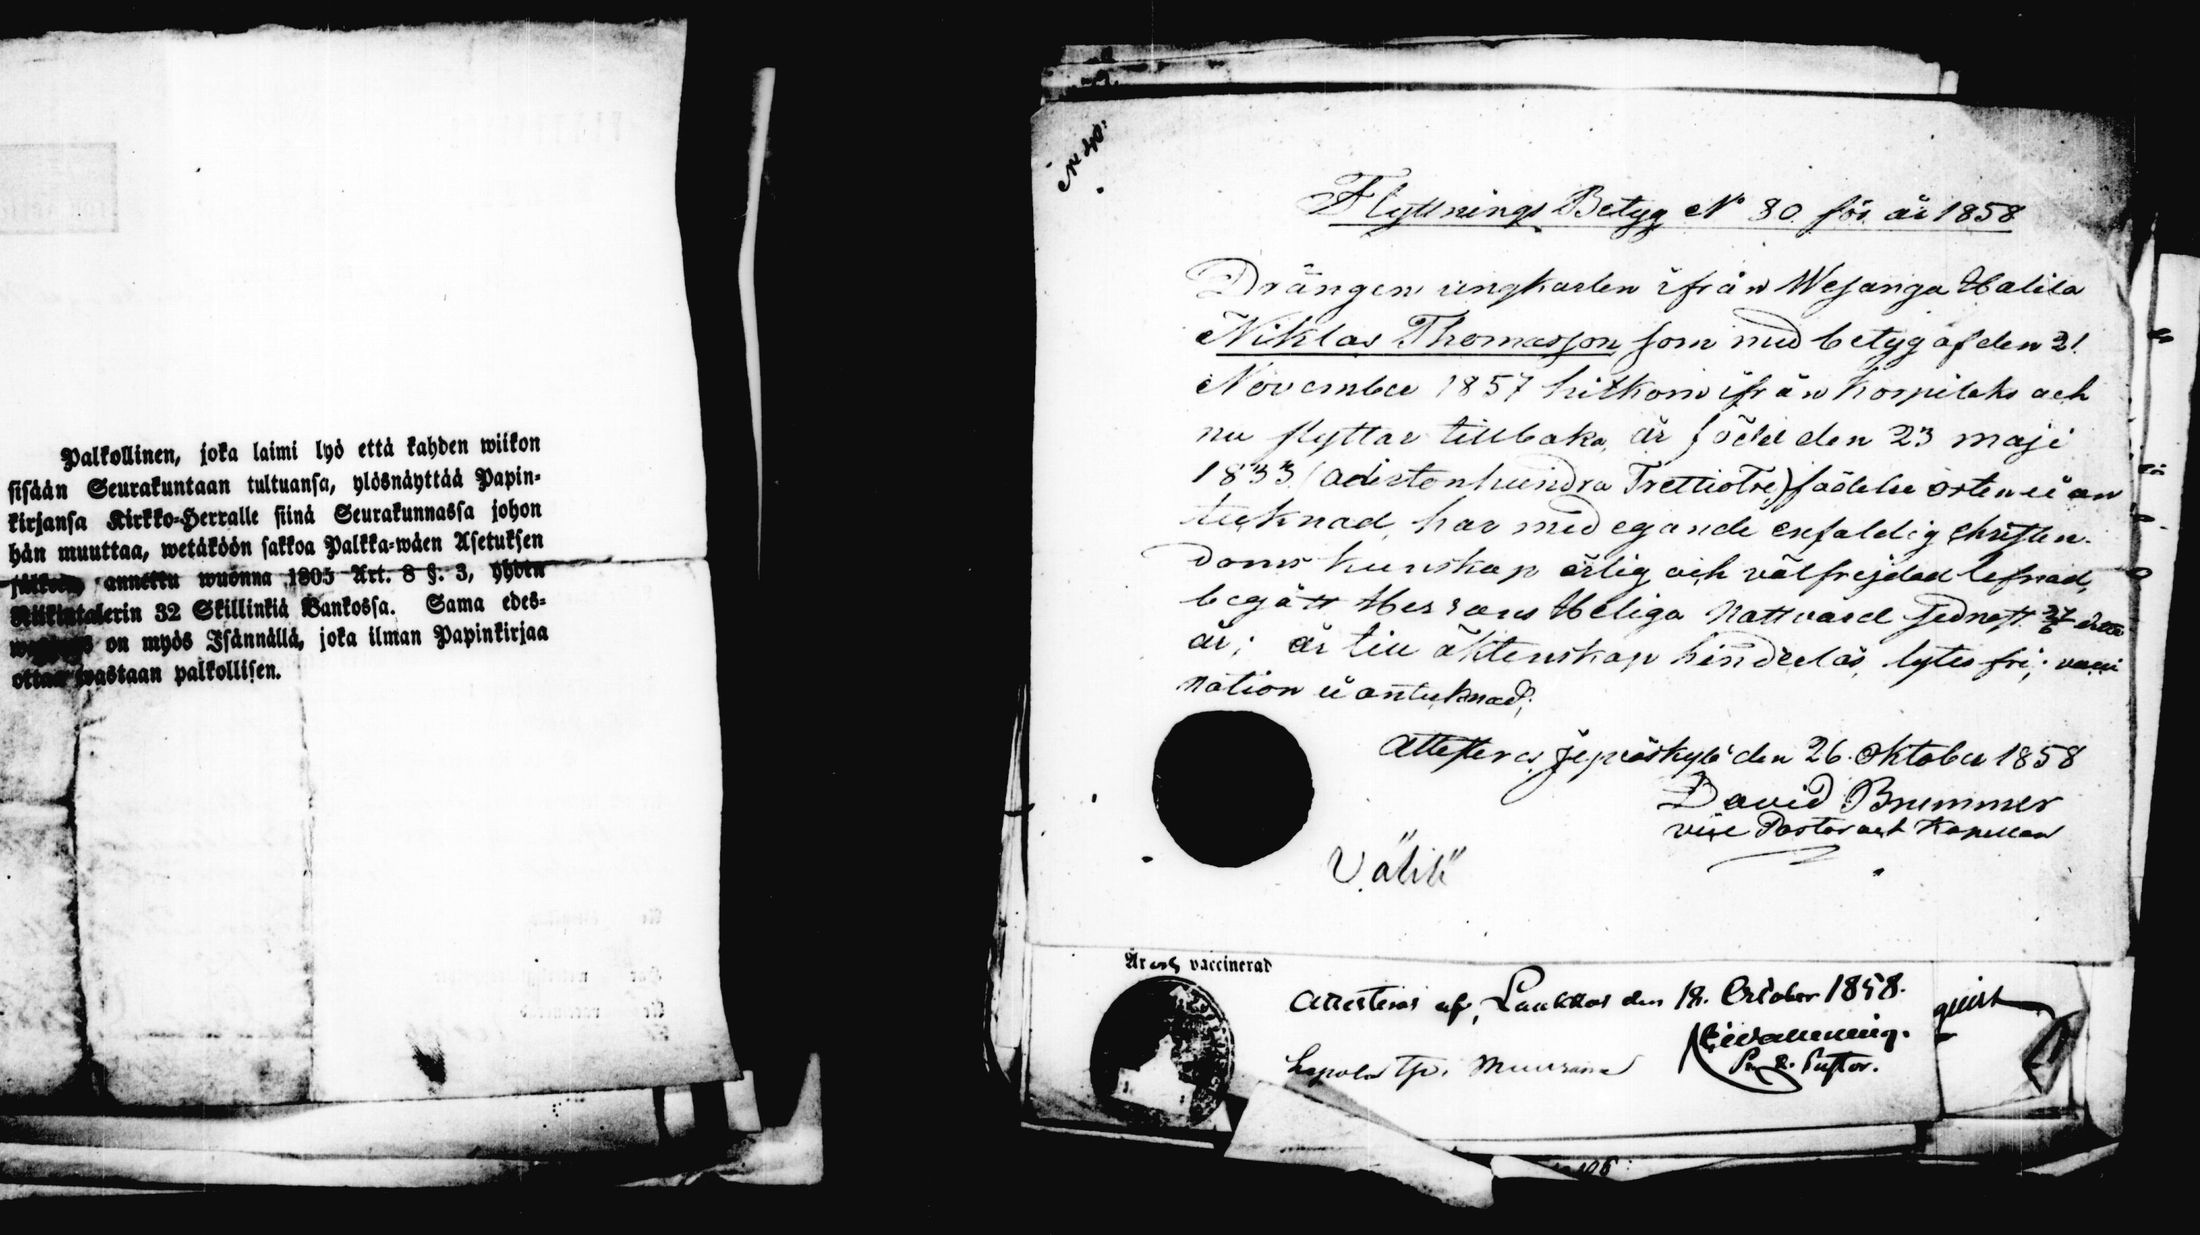 Palkollinen, joka laimi lyö että kahden wiikon
sisään Seurakuntaan tultuansa, ylösnäyttää Papin-
kirjansa Kirkko-Herralle siinä Seurakunnassa johon
hän muuttaa, wetäköön sakkoa Palkka-wäen Asetuksen
jälkeen annettu wuonna 1805 Art. 8 §. 3, yhden
Riikintalerin 32 Skillinkiä Bankossa. Sama edes-
on myös Isännällä, joka ilman Papinkirjaa
ottaa wastaan palkollisen.
No 40:
Flyttnings Betyg No 80 för år 1858
Drängen ungkarlen ifrån Wesanga Halila
Niklas Thomasson som med betyg af den 21
November 1857 hitkom ifrån och
nu flyttar tillbaka, är född den 23 maji
1833 (adertonhundra Trettiotre) födelse orten är an
tecknad, har med egande enfaldig christen-
doms kunskap ärlig och välfrejdad lefnad,
begått Herrans Heliga Nattvard sednast 27/6 detta
år; är till äktenskap hinderlös, lytes fri; vacci
nation är antecknad;
Attesteras Jyväskylä den 26. Oktober 1858
David Brummer
vice Pastor och Kapellan
Välik
Är och vaccinerad
Attesteras af, Laukkas den 18. October 1858.
Pastor.